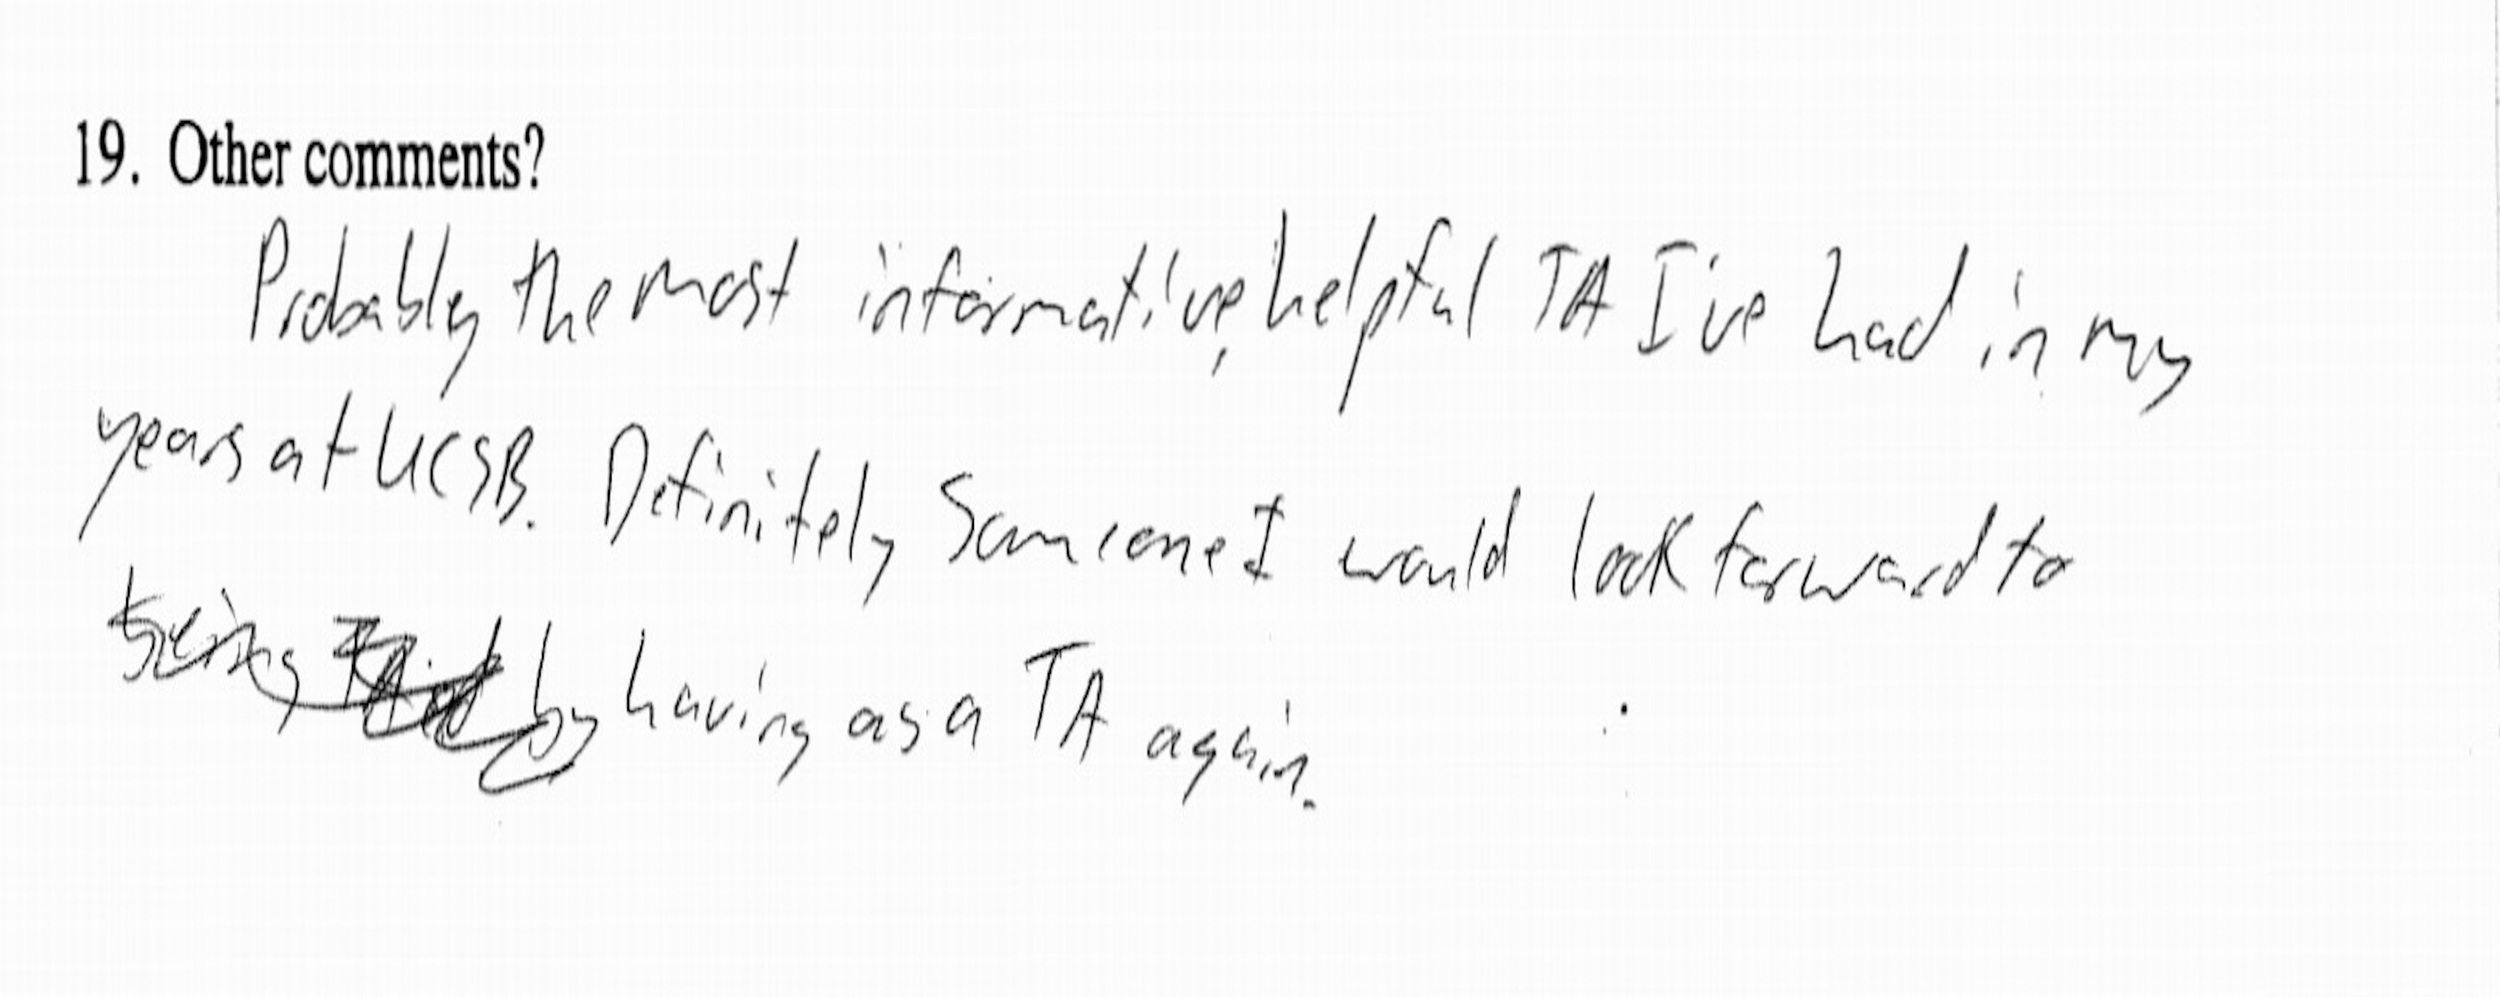 19. Other comments?
Probably the most informative, helpful TA I've had in my
years at UCSB. Definitely someone I would look forward to
being TAied by having as a TA again.